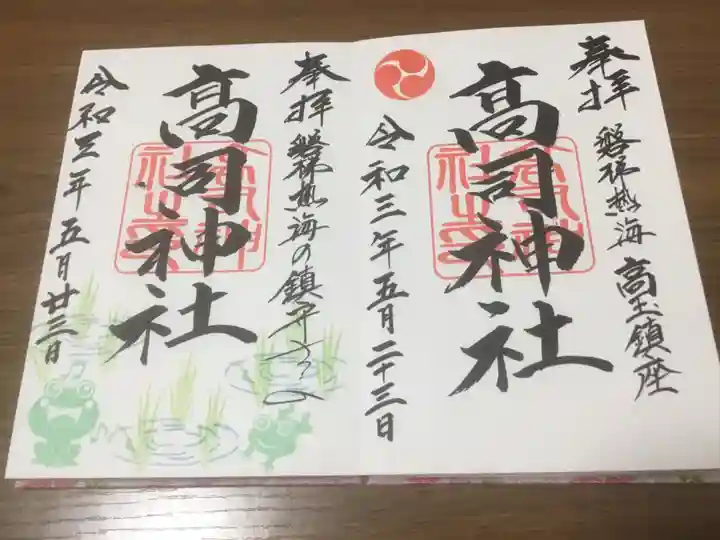 奉拝
磐梯熱海 高玉鎮座
高司神社
令和三年五月二十三日
奉拝
磐梯熱海の鎮守
高司神社
令和三年五月廿三日